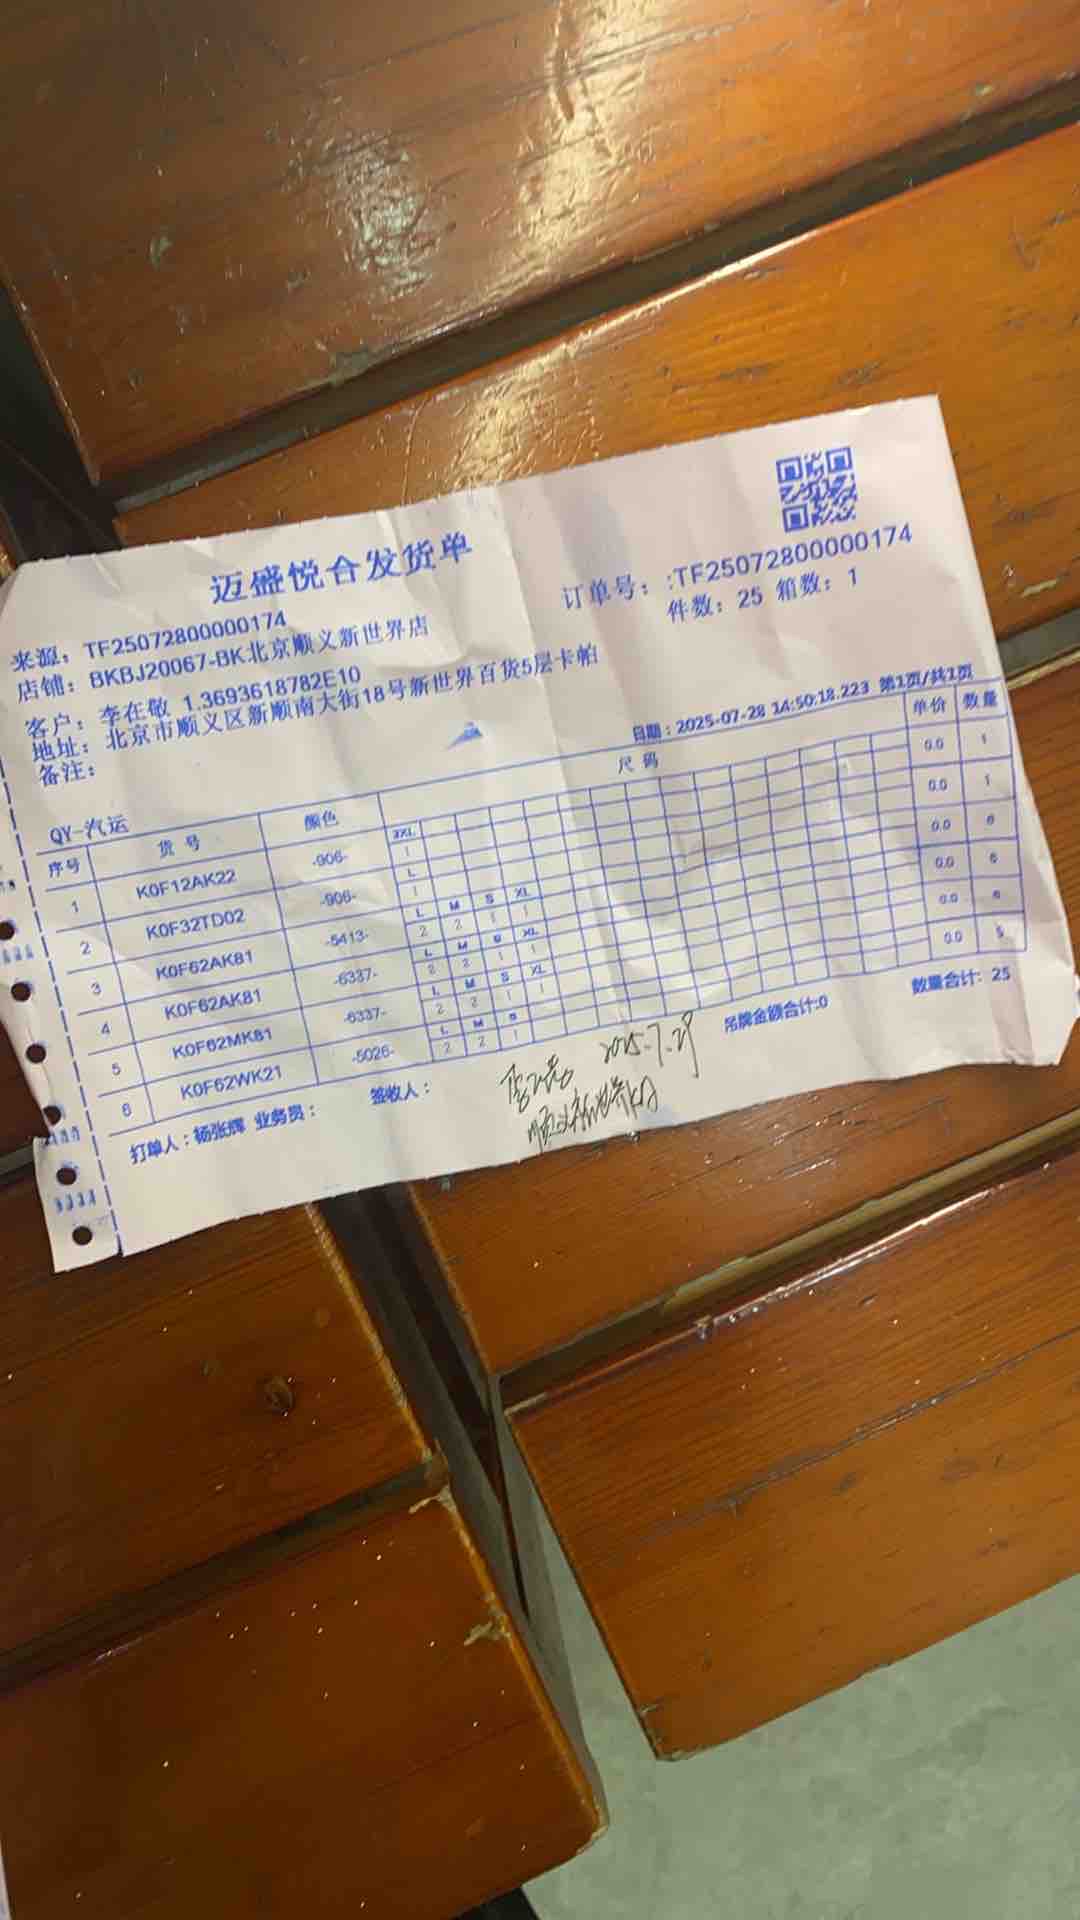 迈盛悦合发货单
订单号：:TF25072800000174
件数：25 箱数：1
来源：TF25072800000174
店铺：BKBJ20067-BK北京顺义新世界店
客户：李在敬 1.3693618782E10
地址：北京市顺义区新顺南大街18号新世界百货5层卡帕
备注：
日期：2025-07-28 14:50:18.223 第1页/共1页
QY-汽运
序号 货号 颜色 尺码 单价 数量
3XL
1 K0F12AK22 -906- 1 0.0 1
L
2 K0F32TD02 -906- 1 0.0 1
L M S XL
3 K0F62AK81 -5413- 2 2 1 1 0.0 6
L M S XL
4 K0F62AK81 -6337- 2 2 1 1 0.0 6
L M S XL
5 K0F62MK81 -6337- 2 2 1 1 0.0 6
L M S
6 K0F62WK21 -5026- 2 2 1 0.0 5
打单人：杨张辉 业务员： 签收人： 吊牌金额合计:0 数量合计：25
2025.7.29
顺义新世界